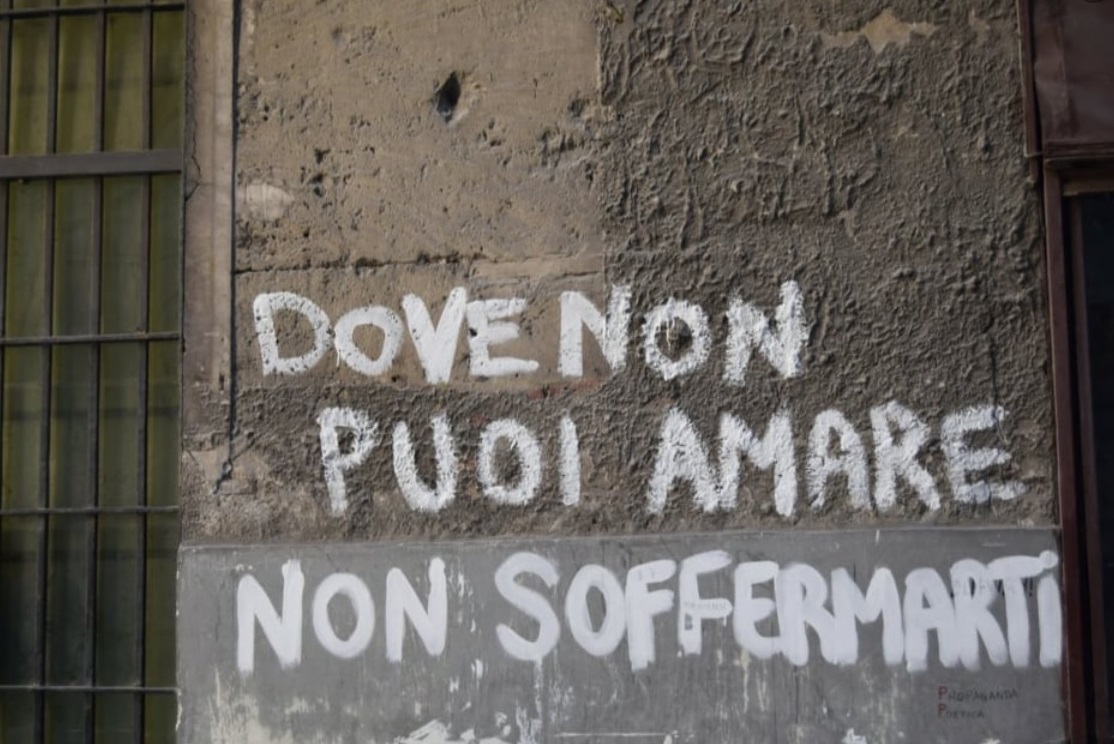 DOVE NON
PUOI AMARE
NON SOFFERMARTi
PROPAGANDA
POETICA